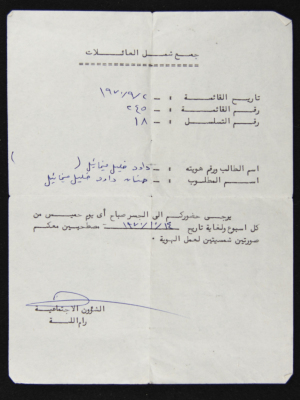 جمع شمل العائلات
تاريخ القائمة : ـ ١٩٧٠/٩/٢
رقم القائمة : ـ ٢٤٥
رقم التسلسل : ـ ١٨
اسم الطالب ورقم هويته : ـ داود خليل ميخائيل (
)
اسم المطلوب : ـ حنا داود خليل ميخائيل
يرجى حضوركم الى الجسر صباح أى يوم خميس من
كل اسبوع ولغاية تاريخ مصطحبين معكم
صورتين شمسيتين لعمل الهوية ٠
الشؤون الاجتماعية
رام اللـه